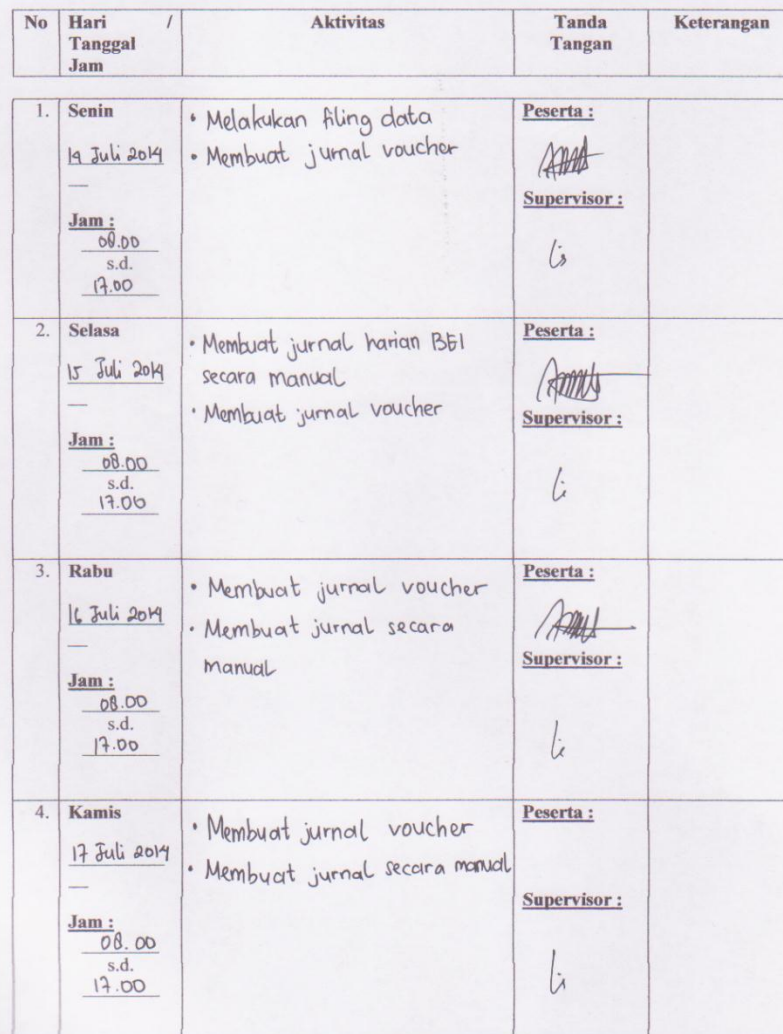 No Hari / Tanggal Jam Aktivitas Tanda Tangan Keterangan
1. Senin
14 Juli 2014
Jam :
08.00
s.d.
17.00
• Melakukan filing data
• Membuat jurnal voucher
Peserta :
Supervisor :
2. Selasa
15 Juli 2014
Jam :
08.00
s.d.
17.00
• Membuat jurnal harian BEI
secara manual
• Membuat jurnal voucher
Peserta :
Supervisor :
3. Rabu
16 Juli 2014
Jam :
08.00
s.d.
17.00
• Membuat jurnal voucher
• Membuat jurnal secara
manual
Peserta :
Supervisor :
4. Kamis
17 Juli 2014
Jam :
08.00
s.d.
17.00
• Membuat jurnal voucher
• Membuat jurnal secara manual
Peserta :
Supervisor :